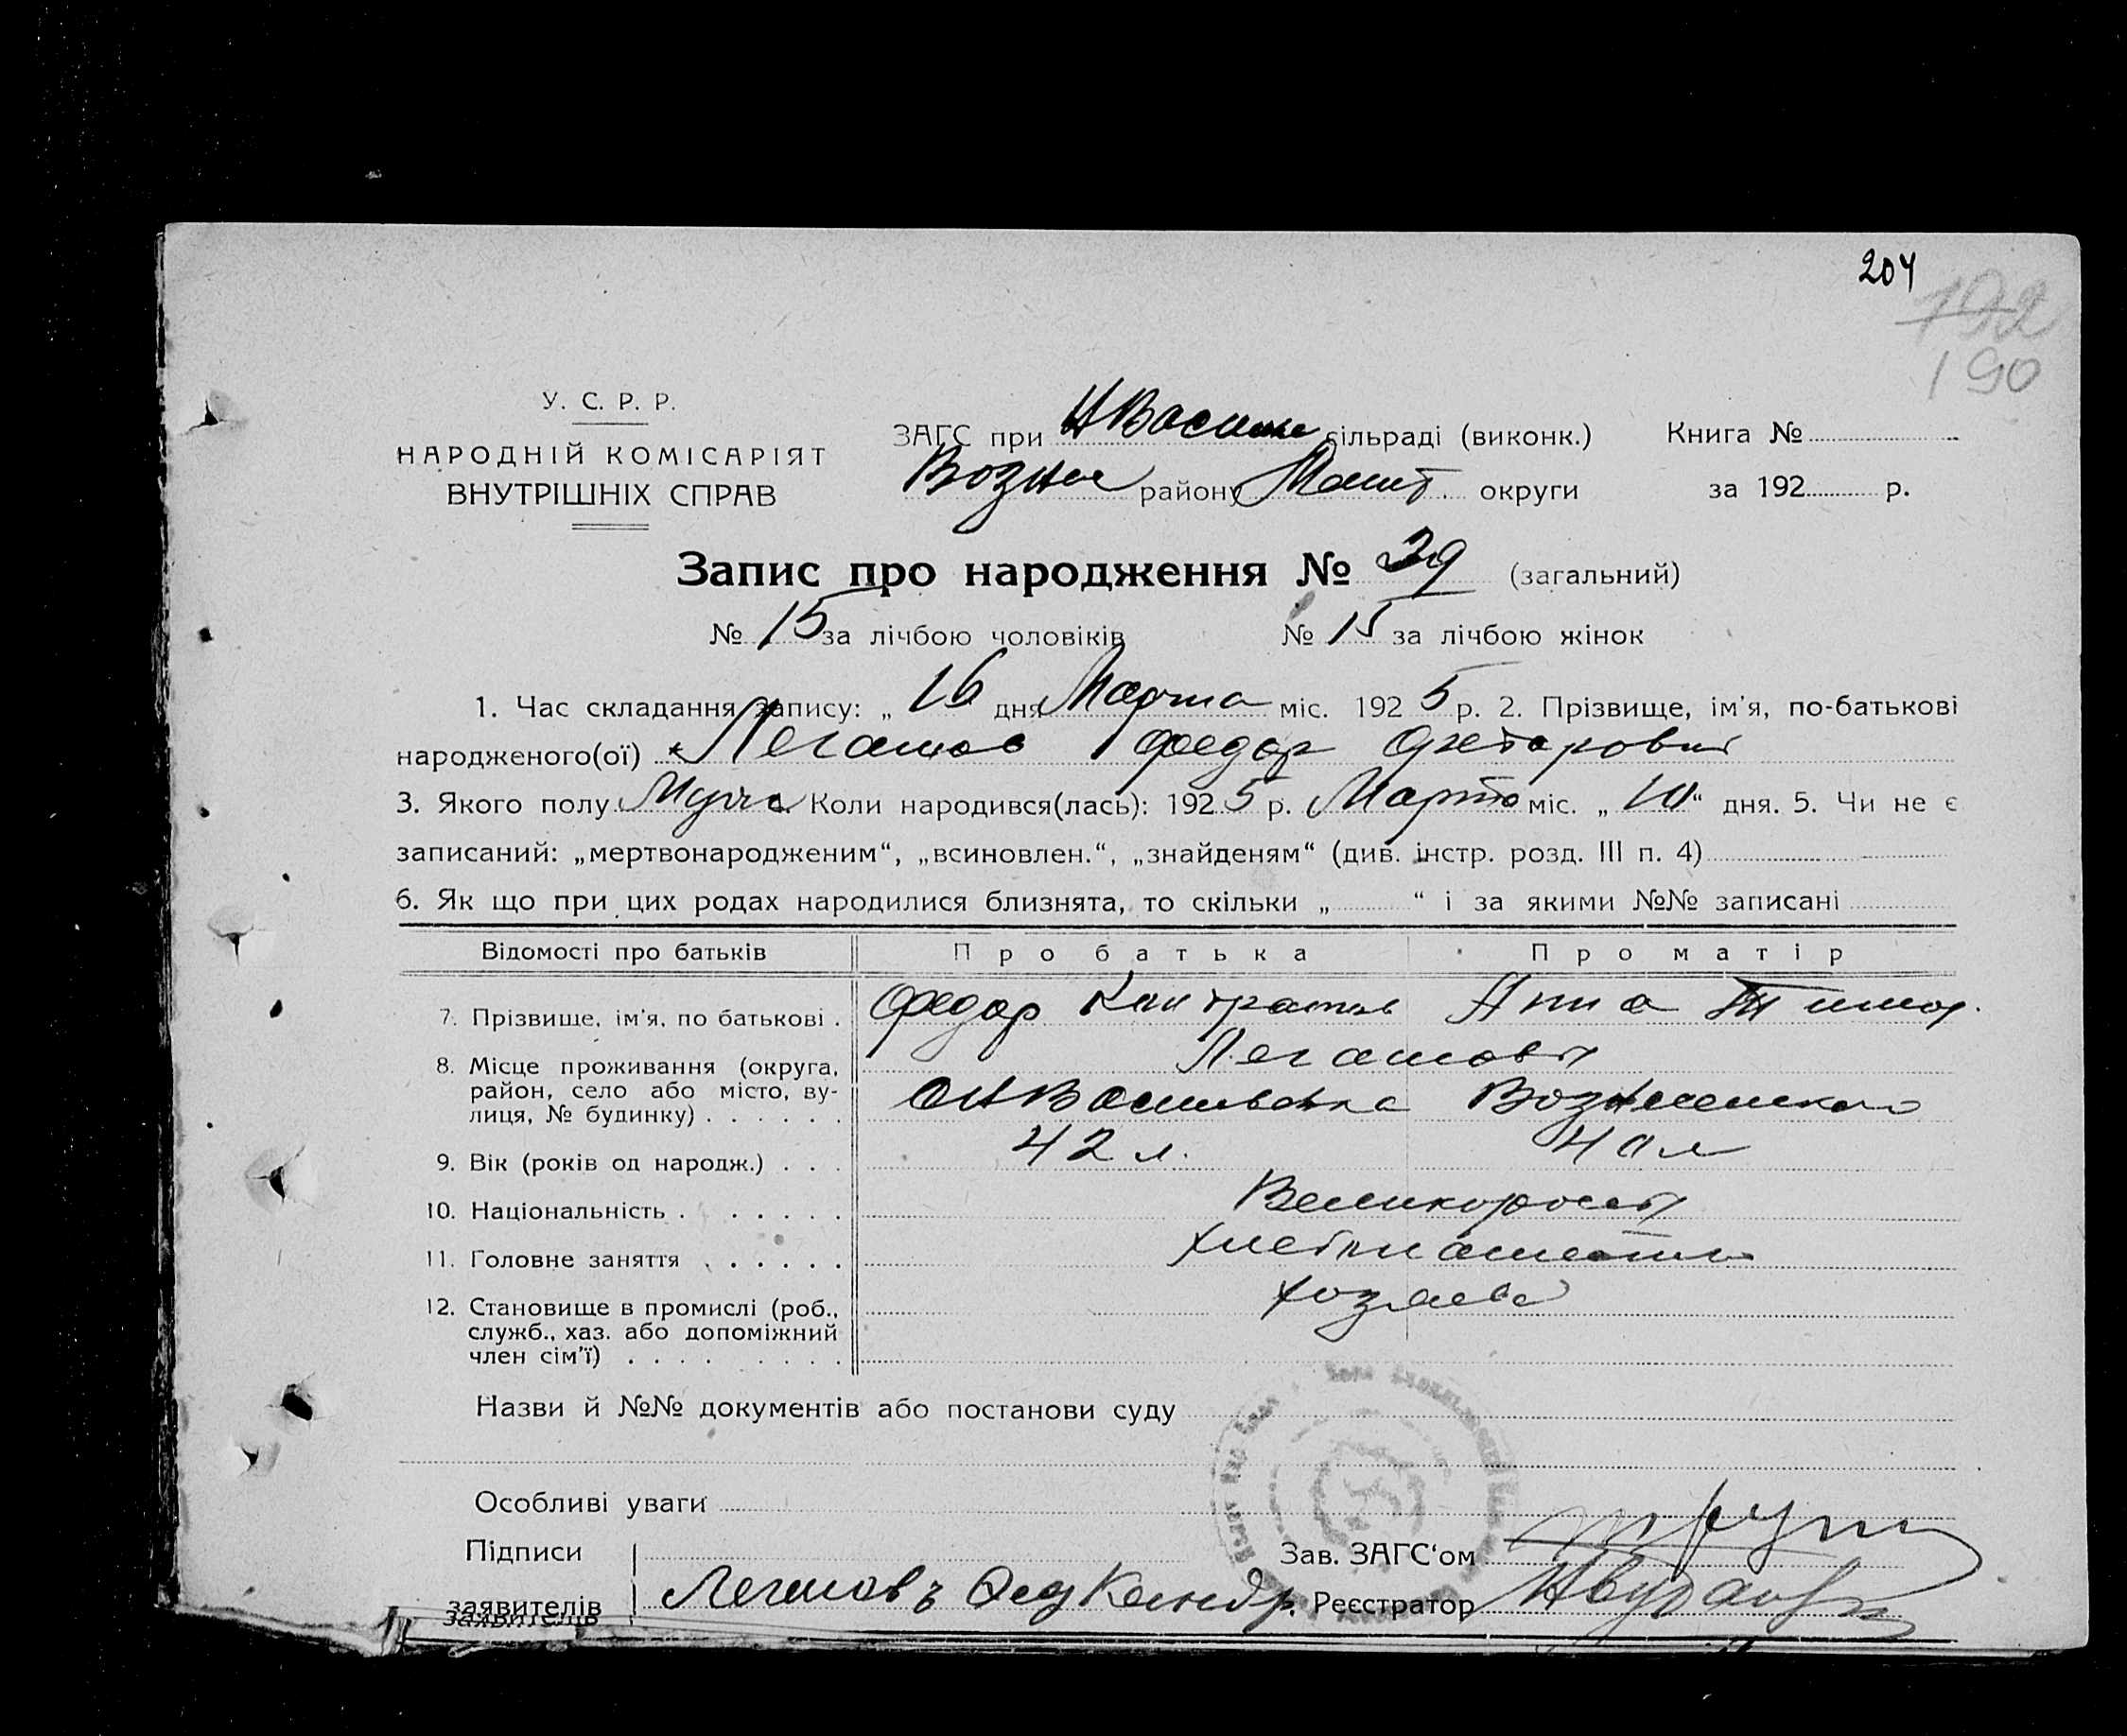 204
192
190
У. С. Р. Р.
НАРОДНІЙ КОМІСАРІЯТ
ВНУТРІШНІХ СПРАВ
ЗАГС при НВасил сільраді (виконк.) Книга №
Возне району округи за 192 р.
Запис про народження № 29 (загальний)
№ 15 за лічбою чоловіків № 15 за лічбою жінок
1. Час складання запису: „ 16 дня Марта міс. 192 5 р. 2. Прізвище, ім'я, по-батькові
народженого(ої) Легашов Федор Фетаровит
3. Якого полу Мужс Коли народився(лась): 192 5 р. Марта міс. „ 10 “ дня. 5. Чи не є
записаний: „мертвонародженим“, „всиновлен.“, „знайденям“ (див. інстр. розд. III п. 4)
6. Як що при цих родах народилися близнята, то скільки „ “ і за якими №№ записані
Відомості про батьків Про батька Про матір
7. Прізвище, ім'я, по батькові . Федор Кантратов Анна Тимоф.
Легашовы
8. Місце проживання (округа,
район, село або місто, ву-
лиця, № будинку) . . . . . . НВасильевка Вознесенского
9. Вік (років од народж.) . . . 42 л. 40 л
10. Національність . . . . . . Великоросы
11. Головне заняття . . . . . . хлебопашество
12. Становище в промислі (роб., хозяева
служб., хаз. або допоміжний
член сім'ї) . . . . . . . . .
Назви й №№ документів або постанови суду
Особливі уваги
Підписи Зав. ЗАГС'ом
заявителів Легашовъ Фед Кандр. Реєстратор
заявителів